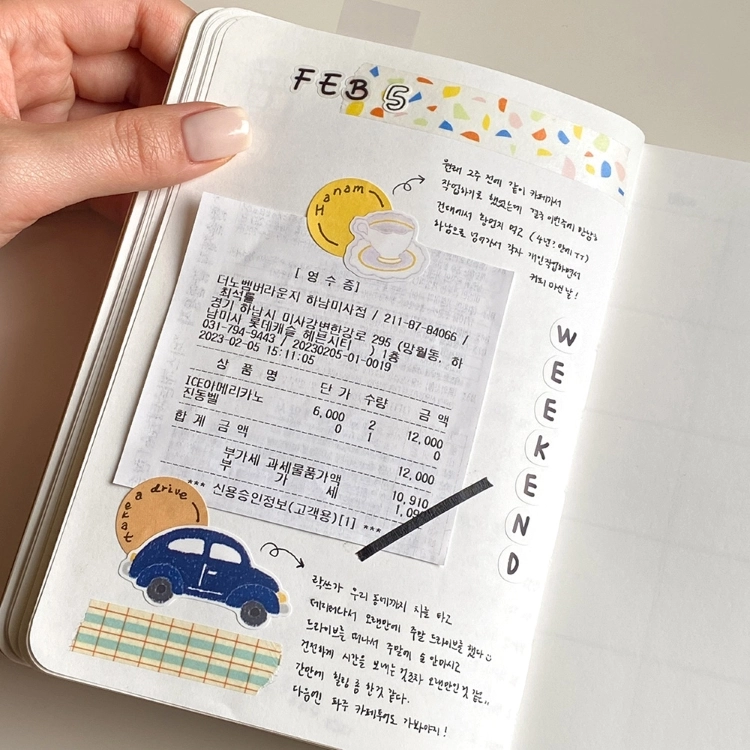 FEB 5
Hanam
원래 2주 전에 같이 카페가서
작업하기로 했었는데 결국 이번주에 만남!
건대에서 황엄지 먹고 (4년?만에 ㅜㅜ)
하남으로 넘어가서 각자 개인작업하면서
커피 마신 날!
[ 영 수 증 ]
더노벰버라운지 하남미사점 / 211-87-84066 /
최석률
경기 하남시 미사강변한강로 295 (망월동, 하
남미사 롯데캐슬 헤븐시티 ) 1층
031-794-9443 / 20230205-01-0019
2023-02-05 15:11:05
상 품 명 단 가 수량 금 액
ICE아메리카노 6,000 2 12,000
진동벨 0 1 0
합 계 금 액 12,000
부가세 과세물품가액 10,910
부 가 세 1,09
*** 신용승인정보(고객용)[1] ***
WEEKEND
take a drive
우리 동네까지 차를 타고
데리러나와서 오랜만에 주말 드라이브를 했다
드라이브를 떠나서 주말에 술 안마시고
건전하게 시간을 보내는 것조차 오랜만인것 같은..
간만에 힐링 좀 한것 같다.
다음엔 파주 카페투어도 가봐야지!